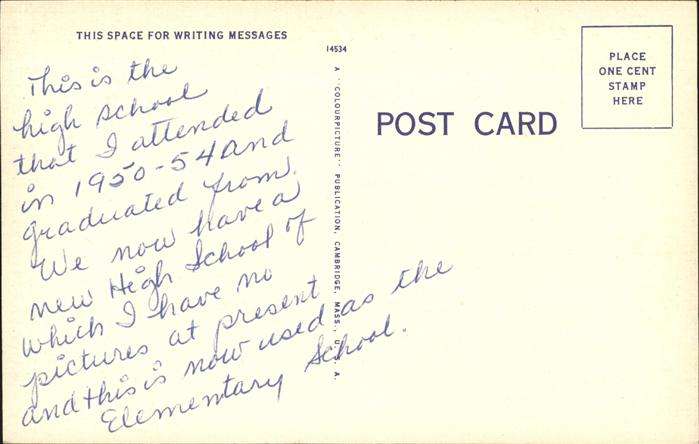 THIS SPACE FOR WRITING MESSAGES
This is the
high school
that I attended
in 1950-54 and
graduated from.
We now have a
new High School of
which I have no
pictures at present
and this is now used as the
Elementary School.
14534
A "COLOURPICTURE" PUBLICATION, CAMBRIDGE, MASS., U.S.A.
POST CARD
PLACE
ONE CENT
STAMP
HERE